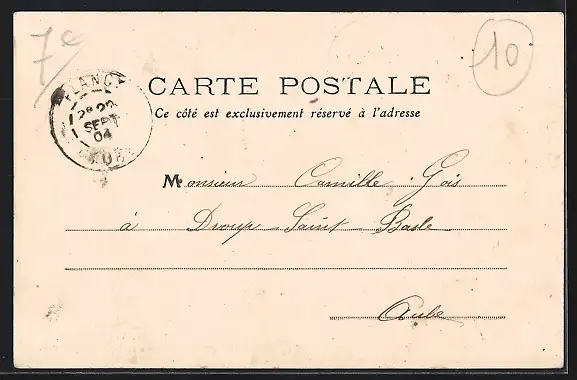 7e
10
PLANCY
2E 22
SEPT
04
AUBE
CARTE POSTALE
Ce côté est exclusivement réservé à l'adresse
Monsieur Camille Gois
à Droupt-Saint-Basle
Aube